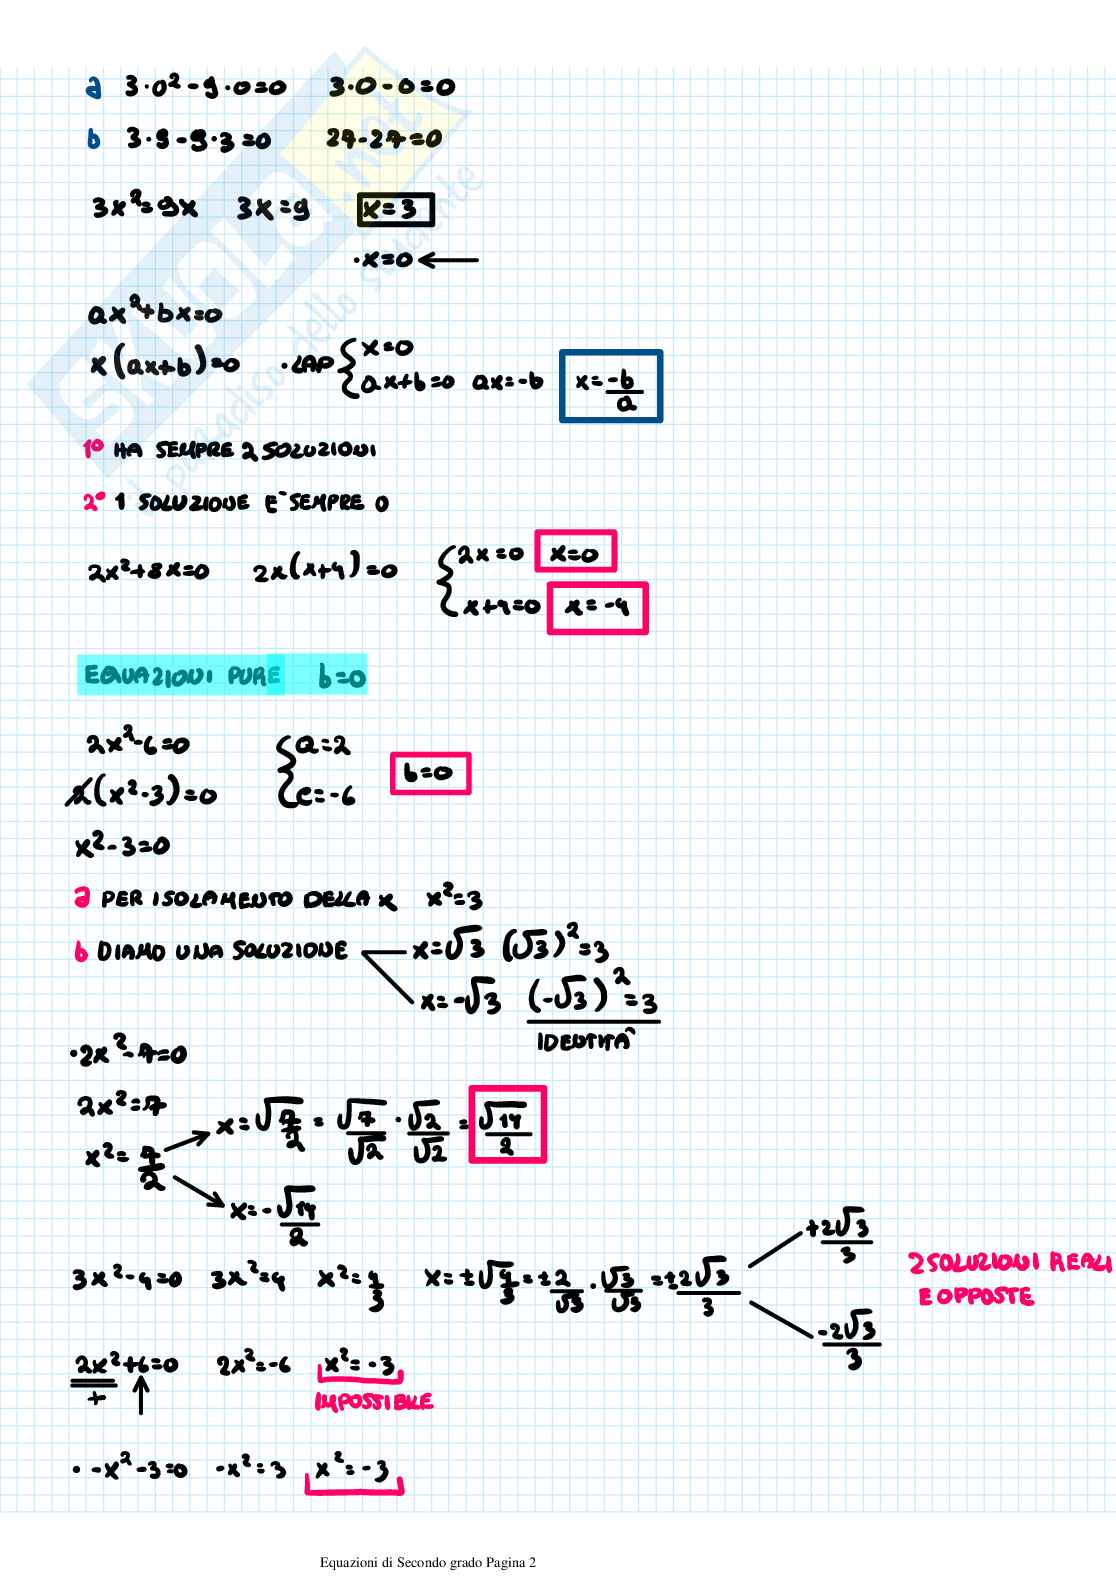 a 3·0²-9·0=0 3·0-0=0
b 3·9-9·3=0 27-27=0
3x²=9x 3x=9 x=3
·x=0
ax²+bx=0
x(ax+b)=0 ·LAP { x=0
ax+b=0 ax=-b x=-b/a
1° HA SEMPRE 2 SOLUZIONI
2° 1 SOLUZIONE E` SEMPRE 0
2x²+8x=0 2x(x+4)=0 { 2x=0 x=0
x+4=0 x=-4
EQUAZIONI PURE b=0
2x²-6=0 { a=2
b=0
2(x²-3)=0 c=-6
x²-3=0
a PER ISOLAMENTO DELLA x x²=3
b DIAMO UNA SOLUZIONE x=√3 (√3)²=3
x=-√3 (-√3)²=3
IDENTITÀ
·2x²-7=0
2x²=7
x²=7/2 x=√7/2 = √7/√2 · √2/√2 = √14/2
x=-√14/2
3x²-4=0 3x²=4 x²=4/3 x=±√4/3=±2/√3·√3/√3=±2√3/3
+2√3/3
-2√3/3
2 SOLUZIONI REALI
E OPPOSTE
2x²+6=0 2x²=-6 x²=-3
+
IMPOSSIBILE
· -x²-3=0 -x²=3 x²=-3
SKUOLA.net
il paradiso dello studente
Equazioni di Secondo grado Pagina 2